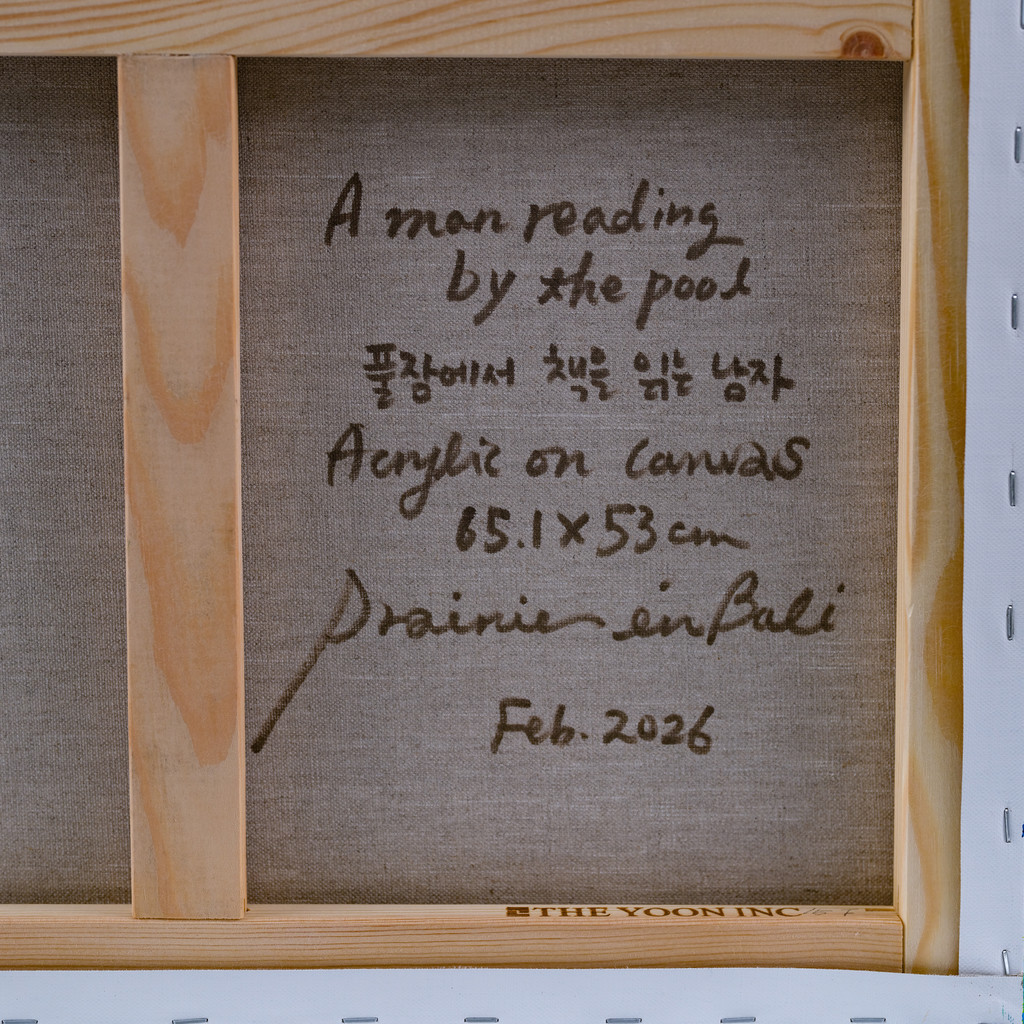 A man reading
by the pool
풀장에서 책을 읽는 남자
Acrylic on canvas
65.1 × 53 cm
Prairie en Bali
Feb. 2026
THE YOON INC